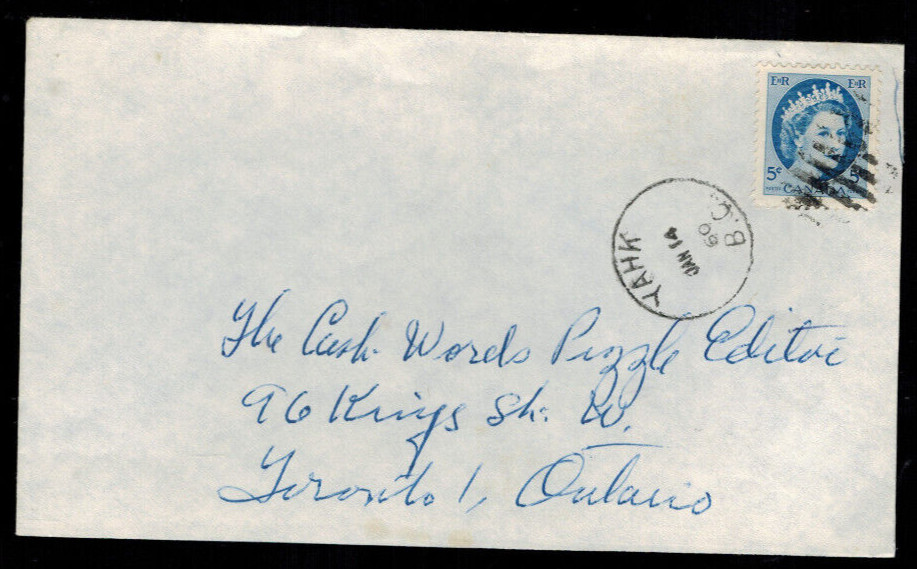 E II R E II R
5¢ 5¢
CANADA
YAHK
JAN 14
60
B.C.
The Cash Words Puzzle Editor
96 Kings St. W.
Toronto 1, Ontario